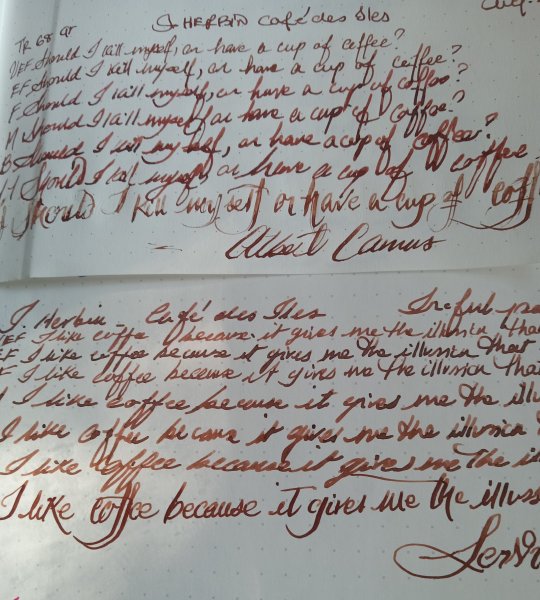 J. HERBIN Café des Îles
TR 68 gr
UEF Should I kill myself, or have a cup of coffee?
EF Should I kill myself, or have a cup of coffee?
F Should I kill myself, or have a cup of coffee?
M Should I kill myself or have a cup of coffee?
B Should I kill myself, or have a cup of coffee?
Should I kill myself, or have a cup of coffee
Should I kill myself or have a cup of coff
Albert Camus
J. Herbin - Café des Îles
UEF I like coffee because it gives me the illusion that
EF I like coffee because it gives me the illusion that
F I like coffee because it gives me the illusion that
I like coffee because it gives me the illu
I like coffee because it gives me the illusion
I like coffee because it gives me the il
I like coffee because it gives me the illus